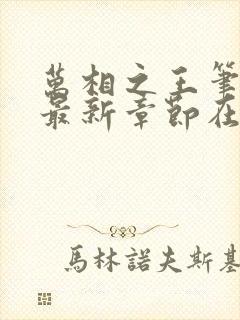 萬相之王筆
最新章節在
馬林諾夫斯基